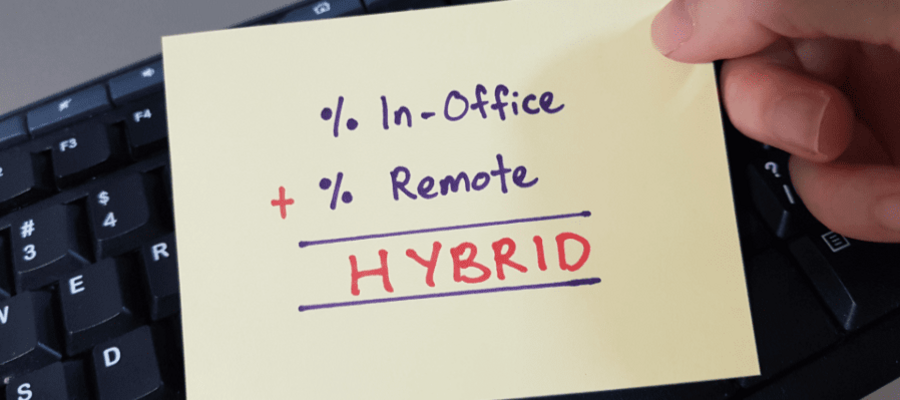 % In-Office
+ % Remote
HYBRID
F3
F4
#
3
$
4
E
R
D
S